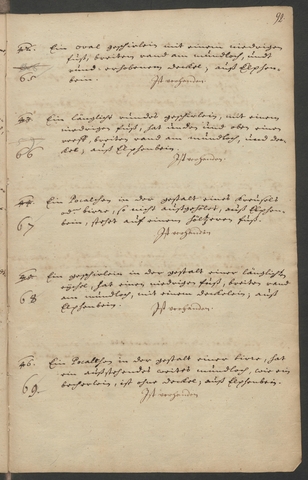 92.
42. Ein oval geschirlein mit einem niedrigen
fuß, breiten rand am mundloch, undt
rund erhobenem deckel, auß Elphen-
bein.
65
Ist vorhanden
43. Ein länglicht rundes geschirlein, mit einem
niedrigen fuß, hat unden und oben einen
reiff, breiten rand am mundloch, und de-
ckel, auß Elphenbein.
66
Ist vorhanden.
44. Ein Pocalchen in der gestalt eines Kreusels
oder birre, so nicht außgehölet, auß Elphen-
bein, stehet auf einem höltzeren fuß.
67
Ist vorhanden
45. Ein geschirlein in der gestalt einer länglichten
eychel, hat einen niedrigen fuß, breiten rand
am mundloch, mit einem deckelein, auß
Elphenbein.
68
Ist vorhanden.
46. Ein Pocalchen in der gestalt einer birre, hat
ein außstehendes weites mundloch, wie ein
becherlein, ist ohne deckel, auß Elphenbein.
69.
Ist vorhanden